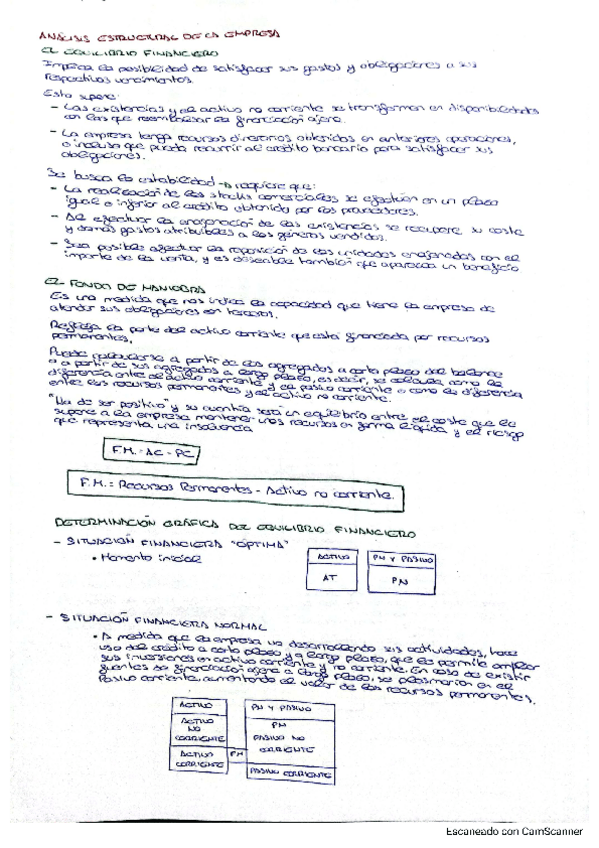 ANÁLISIS ESTRUCTURAL DE LA EMPRESA
EL EQUILIBRIO FINANCIERO
Implica la posibilidad de satisfacer sus gastos y obligaciones a sus
respectivos vencimientos.
Esto supone:
- Las existencias y el activo no corriente se transformen en disponibilidades
con las que reembolsar la financiación ajena.
- La empresa tenga recursos dinerarios obtenidos en anteriores operaciones,
o incluso que pueda recurrir al crédito bancario para satisfacer sus
obligaciones.
Se busca la estabilidad → requiere que:
- La realización de los stocks comerciales se efectúen en un plazo
igual o inferior al crédito obtenido por los proveedores.
- Al efectuar la enajenación de las existencias se recupere su coste
y demás gastos atribuibles a los géneros vendidos.
- Sea posible efectuar la reposición de las unidades enajenadas con el
importe de la venta, y es deseable también que aparezca un beneficio
EL FONDO DE MANIOBRA
Es una medida que nos indica la capacidad que tiene la empresa de
atender sus obligaciones en terceros.
Refleja la parte del activo corriente que está financiada por recursos
permanentes.
Puede calcularse a partir de los agregados a corto plazo del balance
o a partir de sus agregados a largo plazo, es decir, se calcula como la
diferencia entre el activo corriente y el pasivo corriente o como la diferencia
entre los recursos permanentes y el activo no corriente.
"Ha de ser positivo" y su cuantía será un equilibrio entre el coste que le
supone a la empresa mantener unos recursos en forma líquida y el riesgo
que representa una insolvencia
F.M. = AC - PC
F.M. = Recursos Permanentes - Activo no corriente.
DETERMINACIÓN GRÁFICA DEL EQUILIBRIO FINANCIERO
- SITUACIÓN FINANCIERA "ÓPTIMA"
• Momento inicial
ACTIVO
PN Y PASIVO
AT
PN
- SITUACIÓN FINANCIERA NORMAL
• A medida que la empresa va desarrollando sus actividades, hace
uso del crédito a corto plazo y a largo plazo, que les permite ampliar
sus inversiones en activo corriente y no corriente. En caso de existir
fuentes de financiación ajena a largo plazo, se plasmarían en el
Pasivo corriente, aumentando el valor de los recursos permanentes.
ACTIVO
PN Y PASIVO
ACTIVO
NO
CORRIENTE
PN
PASIVO NO
CORRIENTE
ACTIVO
CORRIENTE
FM
PASIVO CORRIENTE
Escaneado con CamScanner